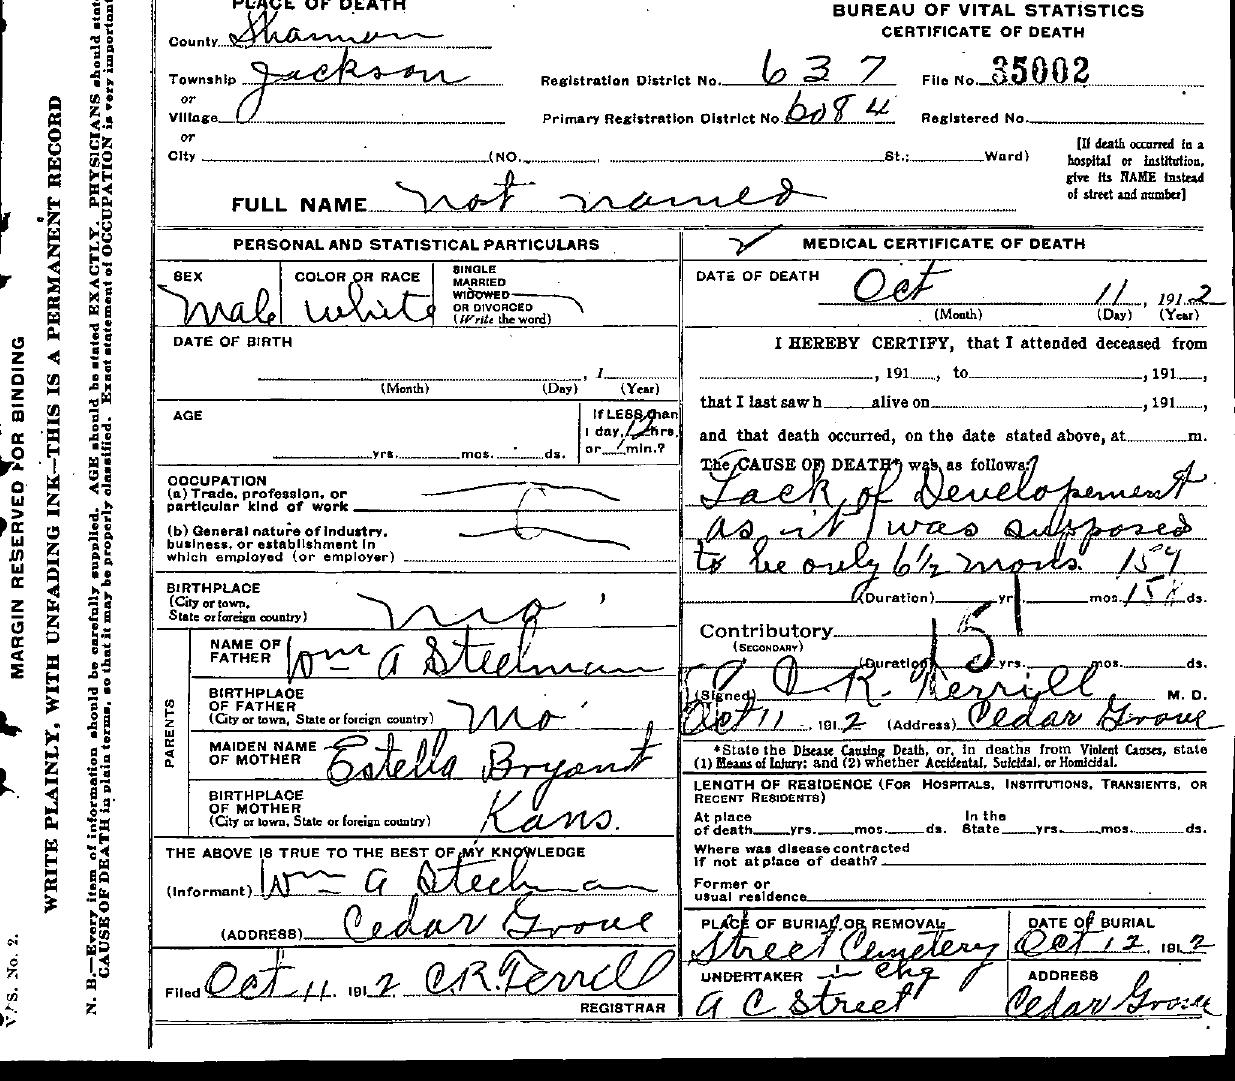 PLACE OF DEATH
County Shannon
Township Jackson
or
Village
or
City (NO. St.; Ward)
BUREAU OF VITAL STATISTICS
CERTIFICATE OF DEATH
Registration District No. 637 File No. 35002
Primary Registration District No. 6084 Registered No.
[If death occurred in a
hospital or institution,
give its NAME instead
of street and number]
FULL NAME not named
PERSONAL AND STATISTICAL PARTICULARS
SEX
Male
COLOR OR RACE
White
SINGLE
MARRIED
WIDOWED
OR DIVORCED
(Write the word)
DATE OF BIRTH
, 1
(Month) (Day) (Year)
AGE
yrs. mos. ds.
If LESS than
1 day, 12 hrs.
or min.?
OCCUPATION
(a) Trade, profession, or
particular kind of work
(b) General nature of industry,
business, or establishment in
which employed (or employer)
BIRTHPLACE
(City or town,
State or foreign country) Mo
PARENTS
NAME OF
FATHER Wm A Steelman
BIRTHPLACE
OF FATHER
(City or town, State or foreign country) Mo
MAIDEN NAME
OF MOTHER Estella Bryant
BIRTHPLACE
OF MOTHER
(City or town, State or foreign country) Kans.
THE ABOVE IS TRUE TO THE BEST OF MY KNOWLEDGE
(Informant) Wm A Steelman
(ADDRESS) Cedar Grove
Filed Oct 11. 1912 C.R. Terrill
REGISTRAR
MEDICAL CERTIFICATE OF DEATH
DATE OF DEATH Oct 11, 1912
(Month) (Day) (Year)
I HEREBY CERTIFY, that I attended deceased from
, 191 , to , 191 ,
that I last saw h alive on , 191 ,
and that death occurred, on the date stated above, at m.
The CAUSE OF DEATH* was as follows:
Lack of Developement
as it was supposed
to be only 6 1/2 mons.
(Duration) yrs. mos. ds.
Contributory 151
(SECONDARY)
(Duration) yrs. mos. ds.
(Signed) R. Terrill M. D.
Oct 11, 1912 (Address) Cedar Grove
*State the Disease Causing Death, or, in deaths from Violent Causes, state
(1) Means of Injury; and (2) whether Accidental, Suicidal, or Homicidal.
LENGTH OF RESIDENCE (FOR HOSPITALS, INSTITUTIONS, TRANSIENTS, OR
RECENT RESIDENTS)
At place In the
of death yrs. mos. ds. State yrs. mos. ds.
Where was disease contracted
if not at place of death?
Former or
usual residence
PLACE OF BURIAL OR REMOVAL
Street Cemetery
DATE OF BURIAL
Oct 12, 1912
UNDERTAKER in chg
A C Street
ADDRESS
Cedar Grove
MARGIN RESERVED FOR BINDING
WRITE PLAINLY, WITH UNFADING INK—THIS IS A PERMANENT RECORD
N. B.—Every item of information should be carefully supplied. AGE should be stated EXACTLY. PHYSICIANS should state
CAUSE OF DEATH in plain terms, so that it may be properly classified. Exact statement of OCCUPATION is very important
V. S. No. 2.